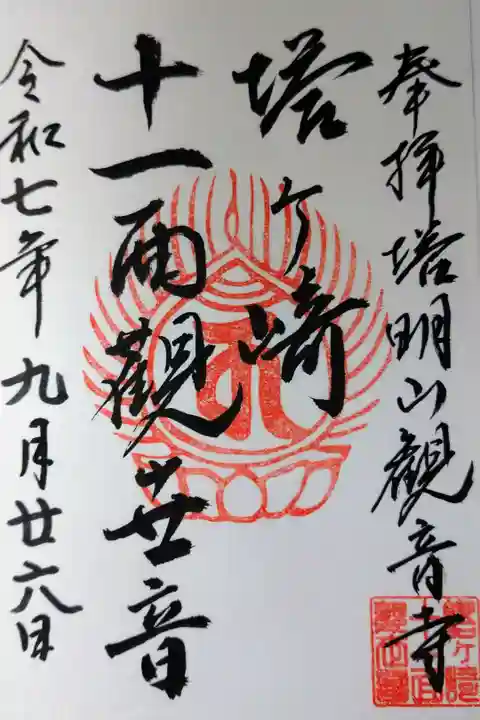 奉拝塔明山觀音寺
塔ヶ崎
十一面觀世音
令和七年九月廿六日